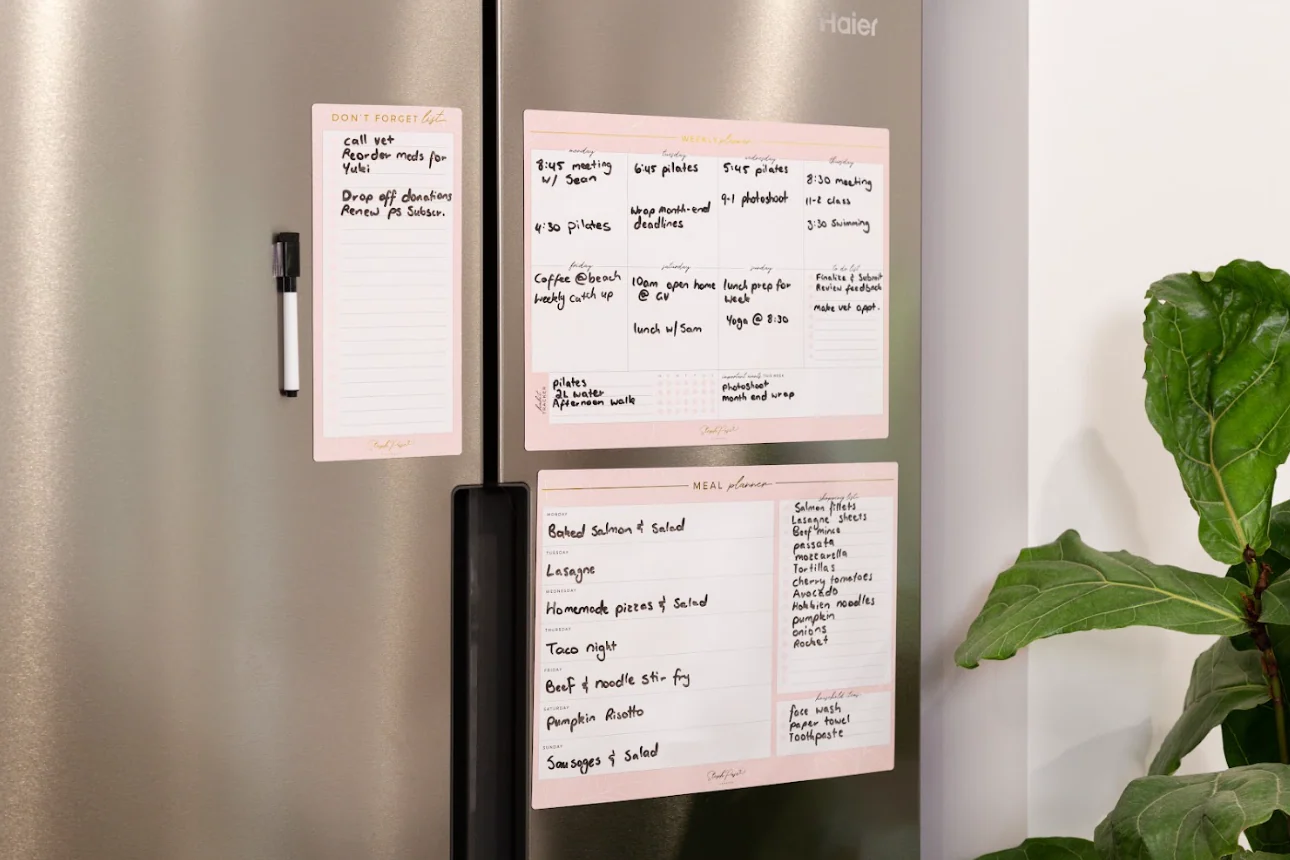 Haier
DON'T FORGET list
call vet
Reorder meds for
Yuki
Drop off donations
Renew PS Subscr.
WEEKLY planner
monday
8:45 meeting
w/ Sean
4:30 pilates
tuesday
6:45 pilates
Wrap month-end
deadlines
wednesday
5:45 pilates
9-1 photoshoot
thursday
8:30 meeting
11-2 class
3:30 Swimming
friday
Coffee @ beach
Weekly catch up
saturday
10am open home
@ GV
lunch w/ Sam
sunday
lunch prep for
week
Yoga @ 8:30
to do list
Finalize & Submit
Review feedback
make vet appt.
habit
TRACKER
pilates
2L water
Afternoon walk
important events THIS WEEK
photoshoot
month end wrap
MEAL planner
MONDAY
Baked Salmon & Salad
TUESDAY
Lasagne
WEDNESDAY
Homemade pizzas & Salad
THURSDAY
Taco night
FRIDAY
Beef & noodle stir fry
SATURDAY
Pumpkin Risotto
SUNDAY
Sausages & Salad
shopping list
Salmon fillets
Lasagne sheets
Beef mince
passata
mozzarella
Tortillas
cherry tomatoes
Avocado
Hokkien noodles
pumpkin
onions
Rocket
household items
face wash
paper towel
Toothpaste